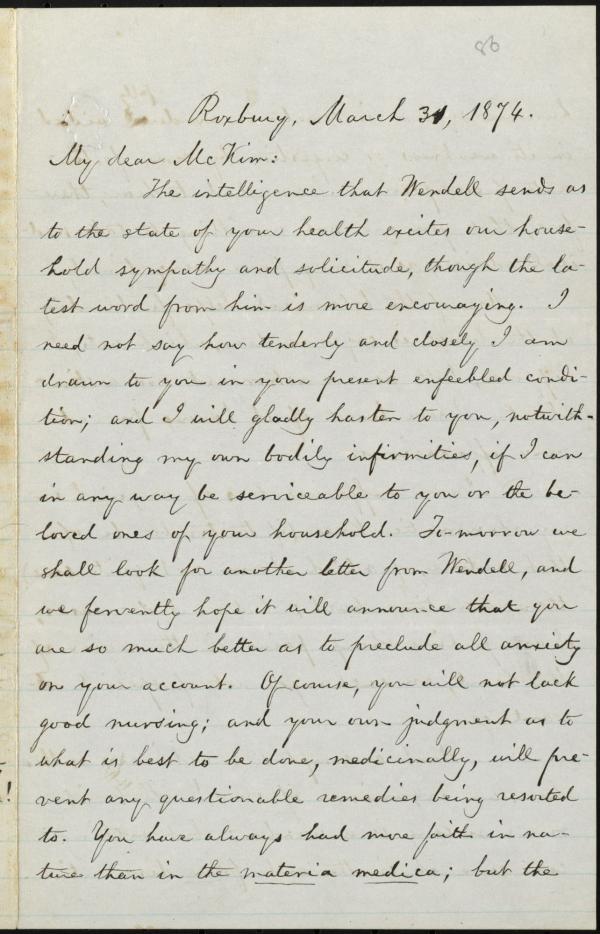 86
Roxbury, March 31, 1874.
My dear McKim:
The intelligence that Wendell sends as
to the state of your health excites our house-
hold sympathy and solicitude, though the la-
test word from him is more encouraging. I
need not say how tenderly and closely I am
drawn to you in your present enfeebled condi-
tion; and I will gladly hasten to you, notwith-
standing my own bodily infirmities, if I can
in any way be serviceable to you or the be-
loved ones of your household. To-morrow we
shall look for another letter from Wendell, and
we fervently hope it will announce that you
are so much better as to preclude all anxiety
on your account. Of course, you will not lack
good nursing; and your own judgment as to
what is best to be done, medicinally, will pre-
vent any questionable remedies being resorted
to. You have always had more faith in na-
ture than in the materia medica; but the
!